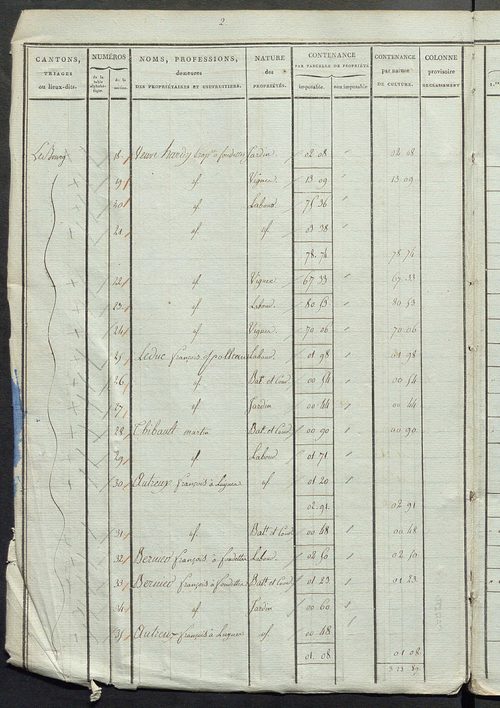 2.
CANTONS, TRIAGES ou lieux-dits.
NUMÉROS de la table alphabétique. de la section.
NOMS, PROFESSIONS, demeures DES PROPRIÉTAIRES ET USUFRUITIERS.
NATURE des PROPRIÉTÉS.
CONTENANCE PAR PARCELLE DE PROPRIÉTÉ imposable. non imposable
CONTENANCE par nature DE CULTURE.
COLONNE provisoire DE CLASSEMENT
Le Bourg 18 Veuve hardy à Jardin 02 08 02 08
19 id Vignes 13 09 13 09
20 id Labour 75 36
21 id id 03 38
78. 74 78 74
22 id Vignes 67 33 67 33
23 id Labour 80 53 80 53
24 id Vignes 70 06 70 06
25 Leduc françois Labour 01 98 01 98
26 id Bat. et Cour 00 54 00 54
27 id Jardin 00 44 00 44
28 Thibault martin Bat. et Cour 00 90 00 90
29 id Labour 01 71
30 Autreux françois à id 01 20
02 91 02 91
31 id Bat. et Cour 00 48 00 48
32 Bernier françois à Labour 02 50 02 50
33 Bernier françois à Bat. et Cour 01 23 01 23
34 id Jardin 00 60
35 Autreux françois à id 00 48
01. 08 01 08